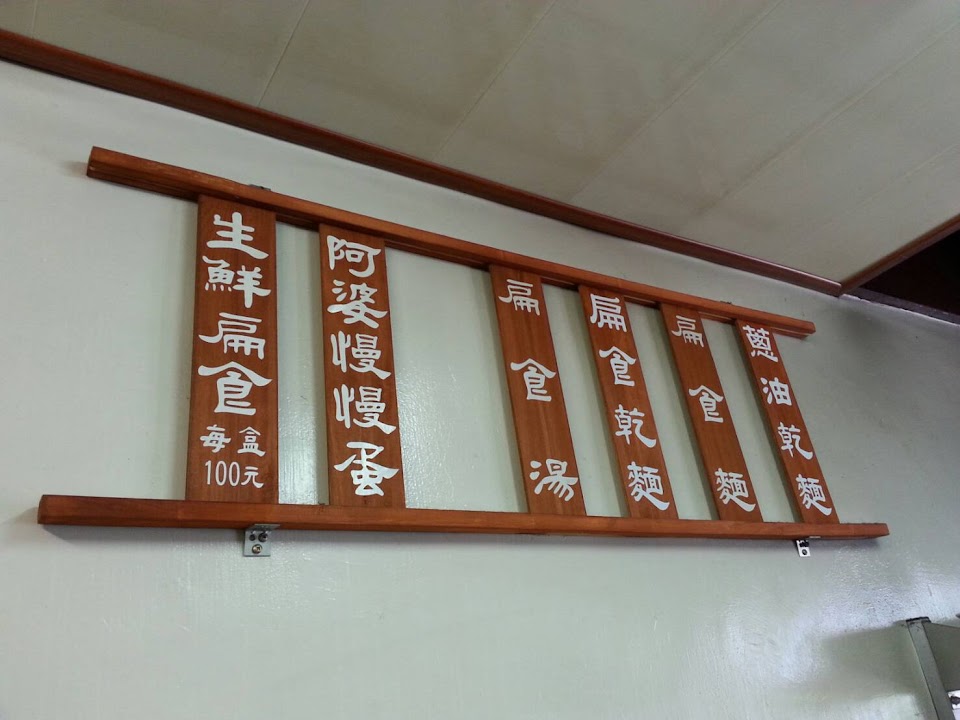 蔥油乾麵
扁食麵
扁食乾麵
扁食湯
阿婆慢慢蛋
生鮮扁食
每盒
100元